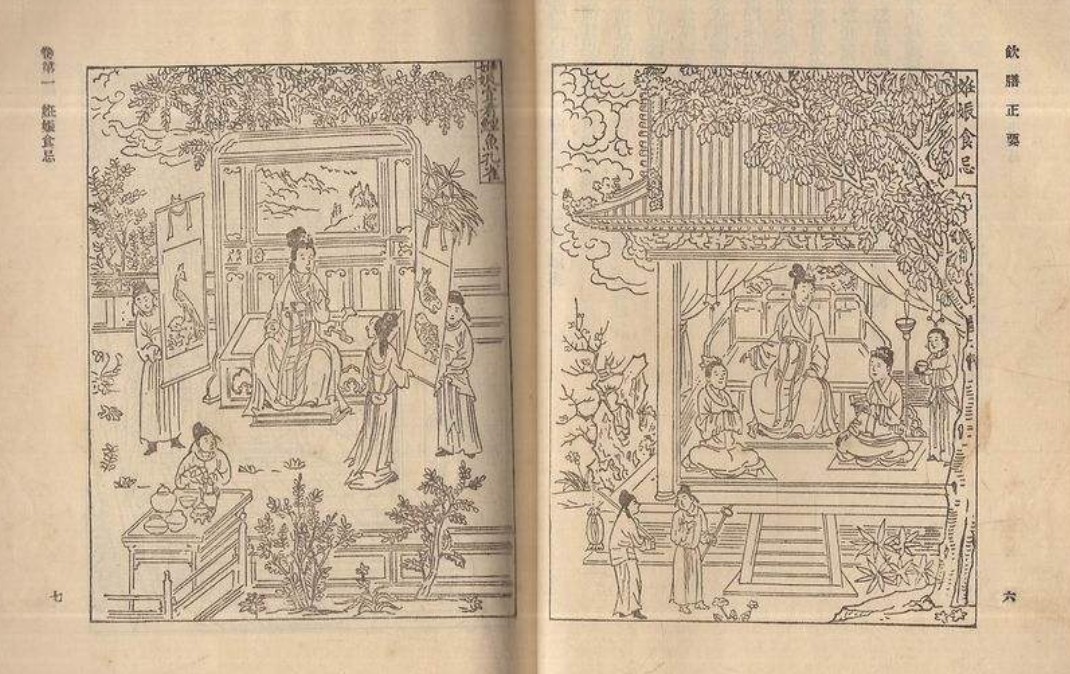 飲膳正要
六
姙娠食忌
姙娠宜看鯉魚孔雀
卷第一 姙娠食忌
七